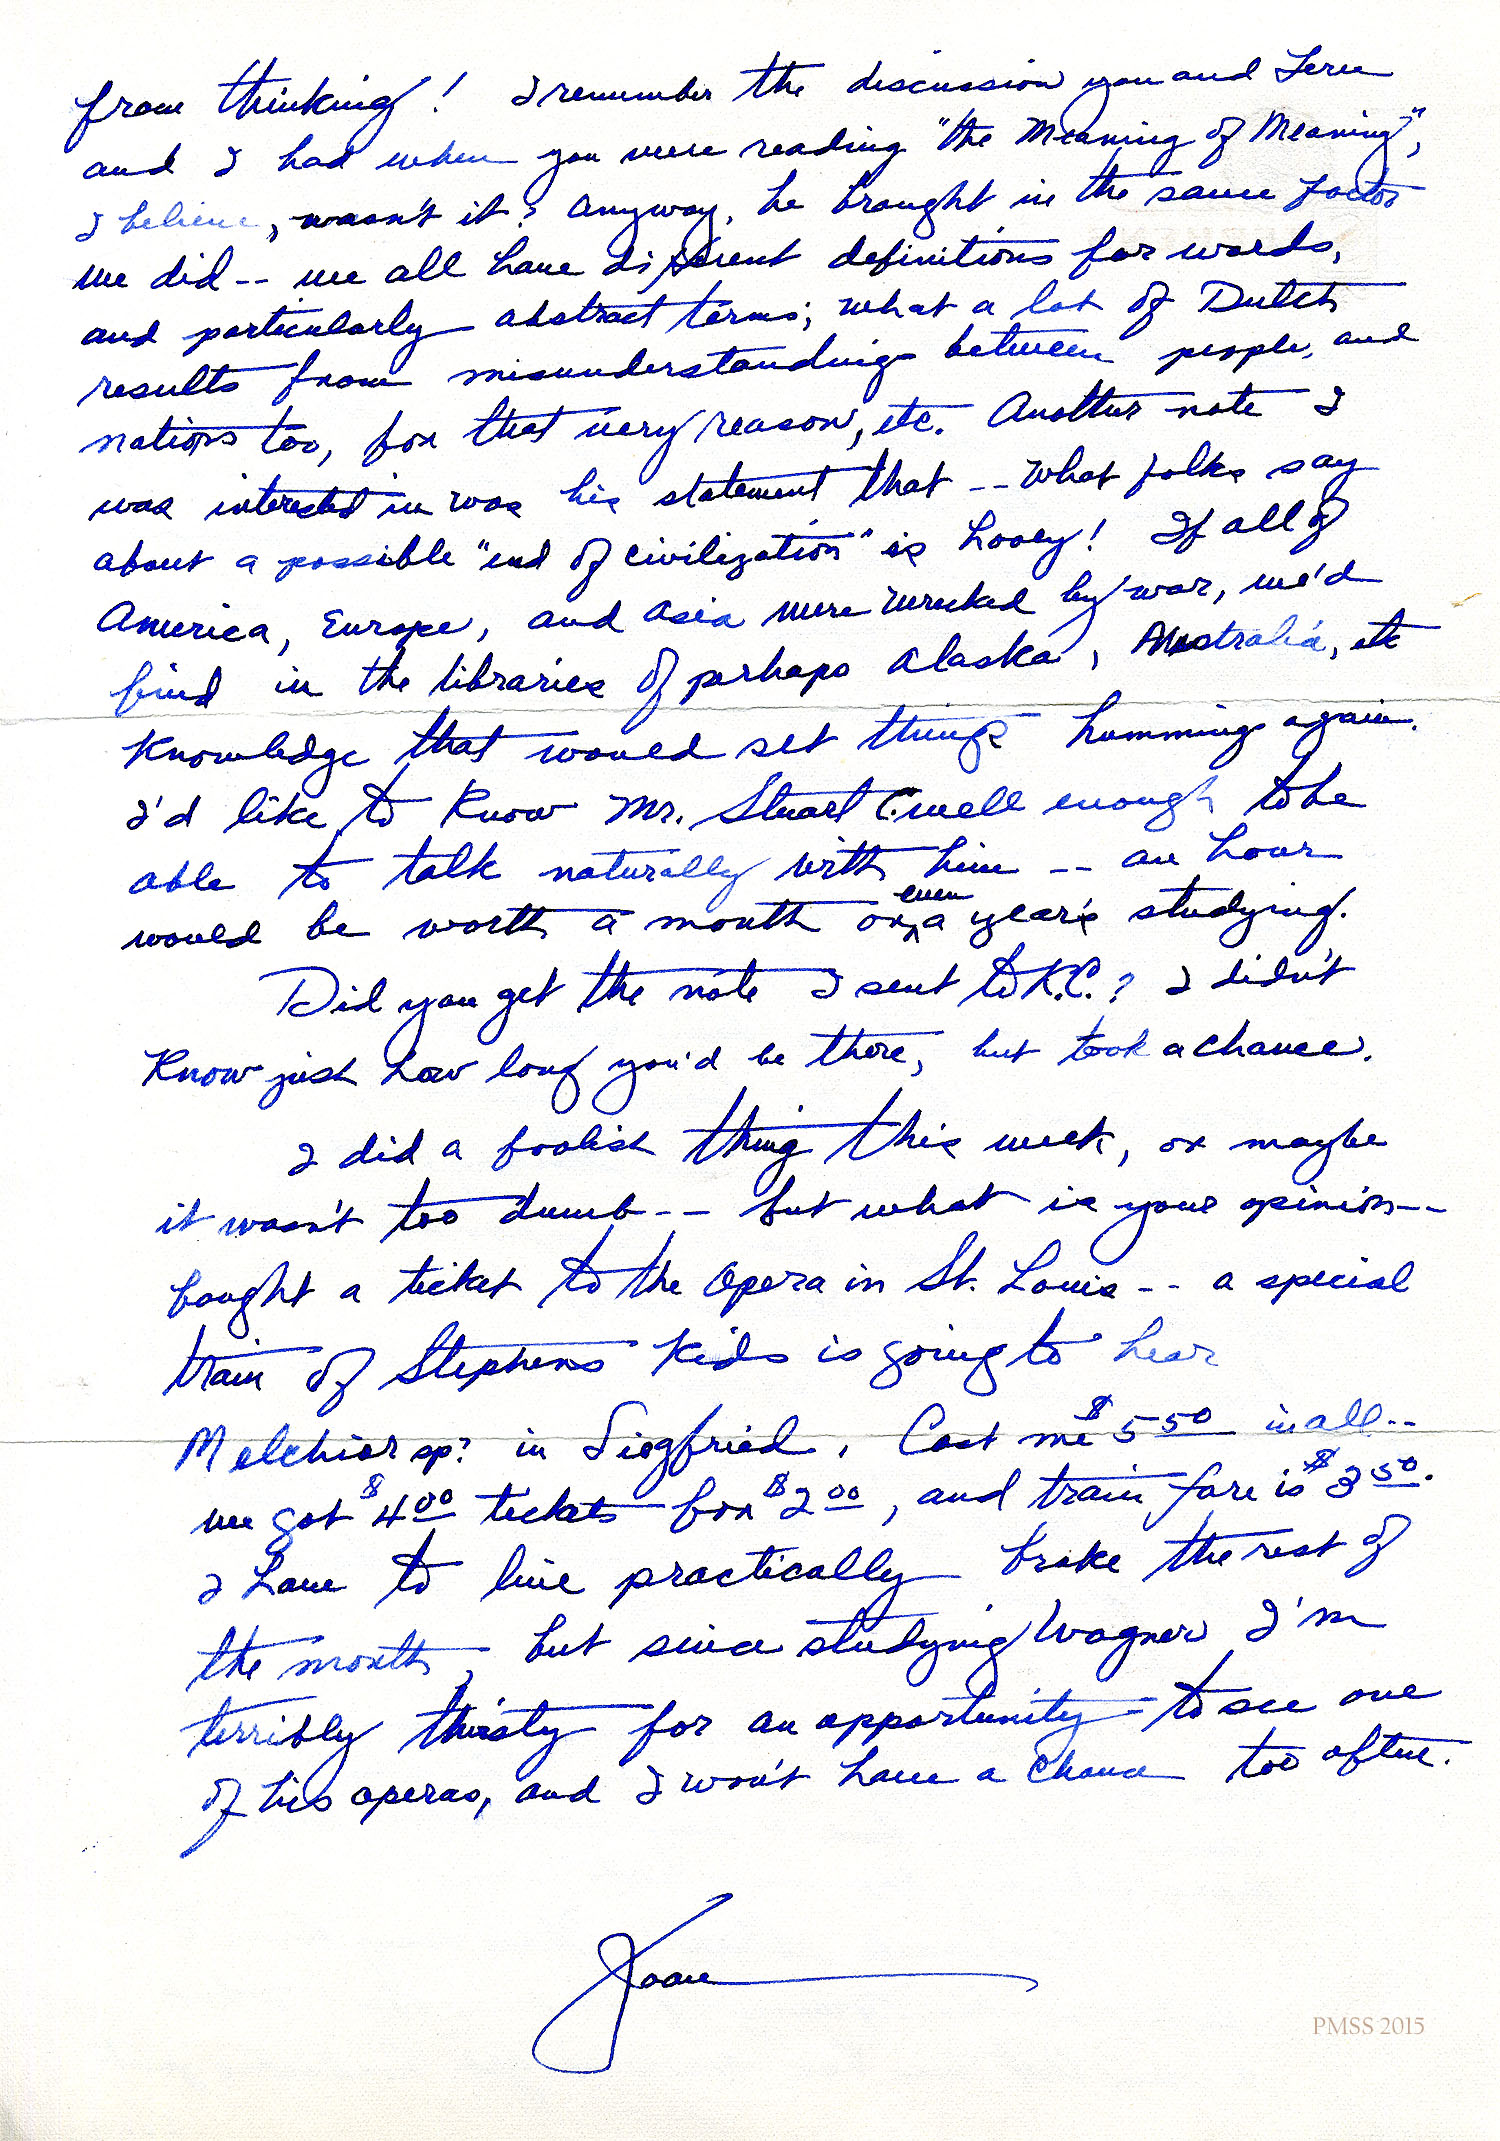 from thinking! I remember the discussion you and
and I had when you were reading "the Meaning of Meaning",
I believe, wasn't it? Anyway, he brought in the same factor
we did -- we all have different definitions for words,
and particularly abstract terms; what a lot of Dutch
results from misunderstandings between people, and
nations too, for that very reason, etc. Another note I
was interested in was his statement that -- what folks say
about a possible "end of civilization" is hooey! If all of
America, Europe, and Asia were wrecked by war, we'd
find in the libraries of perhaps Alaska, Australia, etc
knowledge that would set things humming again.
I'd like to know Mr. Stuart C. well enough to be
able to talk naturally with him -- an hour
would be worth a month or even a year's studying.
Did you get the note I sent to K.C.? I didn't
know just how long you'd be there, but took a chance.
I did a foolish thing this week, or maybe
it wasn't too dumb -- but what is your opinion --
bought a ticket to the Opera in St. Louis -- a special
train of Stephens kids is going to hear
Melchior sp? in Siegfried. Cost me $5 50 in all --
we got $4 00 tickets for $2 00, and train fare is $3 50.
I have to live practically broke the rest of
the month, but since studying Wagner I'm
terribly thirsty for an opportunity to see one
of his operas, and I won't have a chance too often.
Joan
PMSS 2015